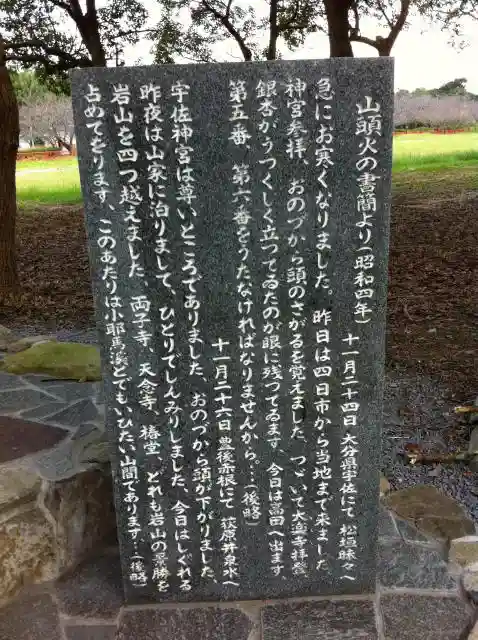 山頭火の書簡より(昭和四年)
十一月二十四日 大分県宇佐にて 松垣昧々へ
急にお寒くなりました。昨日は四日市から当地まで来ました
神宮参拝、おのづから頭のさがるを覚えました、つゞいて大楽寺拝登
銀杏がうつくしく立つてゐるのが眼に残つてゐます、今日は高田へ出ます、
第五番 第六番をうたなければなりませんから。…(後略)
十一月二十六日 豊後赤根にて 荻原井泉水へ
宇佐神宮は尊いところでありました、おのづから頭が下がりました、
昨夜は山家に泊りまして、ひとりでしんみりしました、今日はしぐれる
岩山を四つ越えました、両子寺、天念寺、椿堂、どれも岩山の景勝を
占めてをります、このあたりは小耶馬溪とでもいひたい山間であります…(後略)